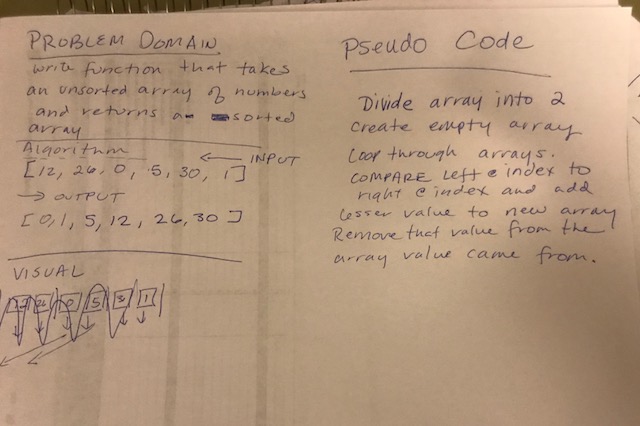 PROBLEM DOMAIN
write function that takes
an unsorted array of numbers
and returns a sorted
array
Algorithm
← INPUT
[12, 26, 0, 5, 30, 1]
→ OUTPUT
[0, 1, 5, 12, 26, 30]
VISUAL
12 26 0 5 30 1
Pseudo Code
Divide array into 2
create empty array
Loop through arrays.
COMPARE Left @ index to
right @ index and add
lesser value to new array
Remove that value from the
array value came from.